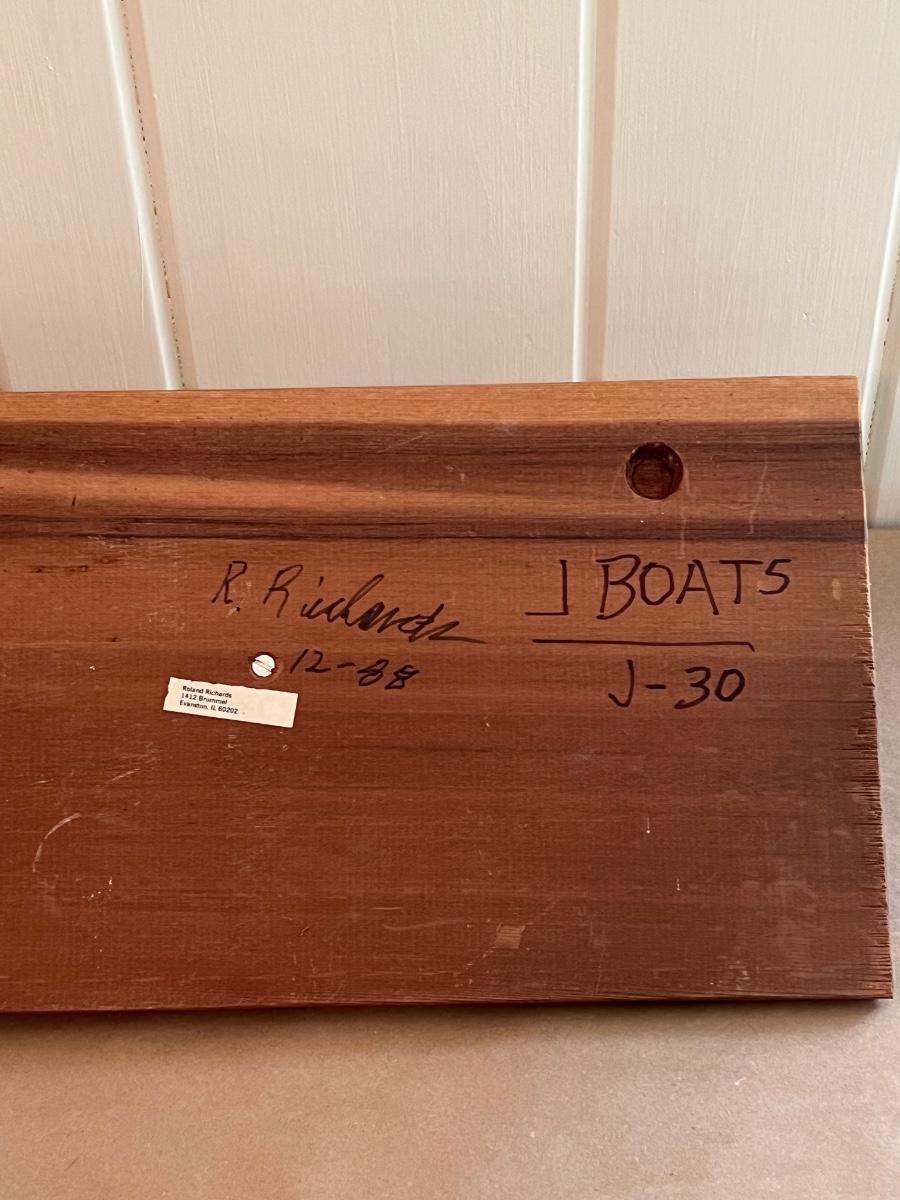 R. Richards
12-88
J BOATS
J-30
Roland Richards
1412 Brummel
Evanston, IL 60202